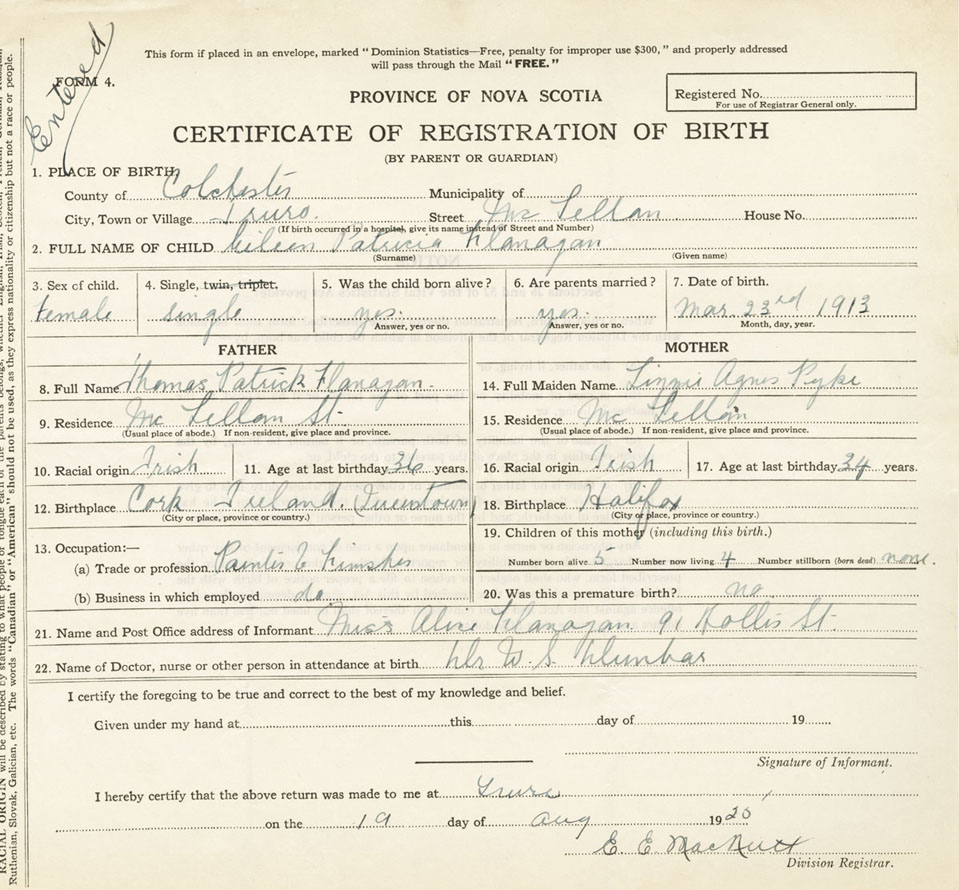 This form if placed in an envelope, marked "Dominion Statistics—Free, penalty for improper use $300," and properly addressed
will pass through the Mail "FREE."
Entered
FORM 4.
PROVINCE OF NOVA SCOTIA
Registered No.
For use of Registrar General only.
CERTIFICATE OF REGISTRATION OF BIRTH
(BY PARENT OR GUARDIAN)
1. PLACE OF BIRTH
County of Colchester Municipality of
City, Town or Village Truro. Street Mc Lellan House No.
(If birth occurred in a hospital, give its name instead of Street and Number)
2. FULL NAME OF CHILD Eileen Patricia Flanagan
(Surname) (Given name)
3. Sex of child. 4. Single, twin, triplet. 5. Was the child born alive? 6. Are parents married? 7. Date of birth.
female single yes. yes. Mar. 23rd 1913
Answer, yes or no. Answer, yes or no. Month, day, year.
FATHER MOTHER
8. Full Name Thomas Patrick Flanagan. 14. Full Maiden Name Lizzie Agnes Pyke
9. Residence Mc Lellan St. 15. Residence Mc Lellan
(Usual place of abode.) If non-resident, give place and province. (Usual place of abode.) If non-resident, give place and province.
10. Racial origin Irish 11. Age at last birthday 36 years. 16. Racial origin Irish 17. Age at last birthday 34 years.
12. Birthplace Cork Ireland. (Queenstown) 18. Birthplace Halifax
(City or place, province or country.) (City or place, province or country.)
19. Children of this mother (including this birth.)
13. Occupation:—
(a) Trade or profession Painter & Finisher Number born alive 5 Number now living 4 Number stillborn (born dead) none.
(b) Business in which employed do 20. Was this a premature birth? no.
21. Name and Post Office address of Informant Miss Aline Flanagan 91 Hollis St.
22. Name of Doctor, nurse or other person in attendance at birth Dr W. S. Dunbar
I certify the foregoing to be true and correct to the best of my knowledge and belief.
Given under my hand at this day of 19
Signature of Informant.
I hereby certify that the above return was made to me at Truro
on the 19 day of Aug 19
E. E. MacNutt
Division Registrar.
RACIAL ORIGIN will be described by stating to what people or
Ruthenian, Slovak, Galician, etc. The words "Canadian" or "American" should not be used, as they express nationality or citizenship but not a race or people.